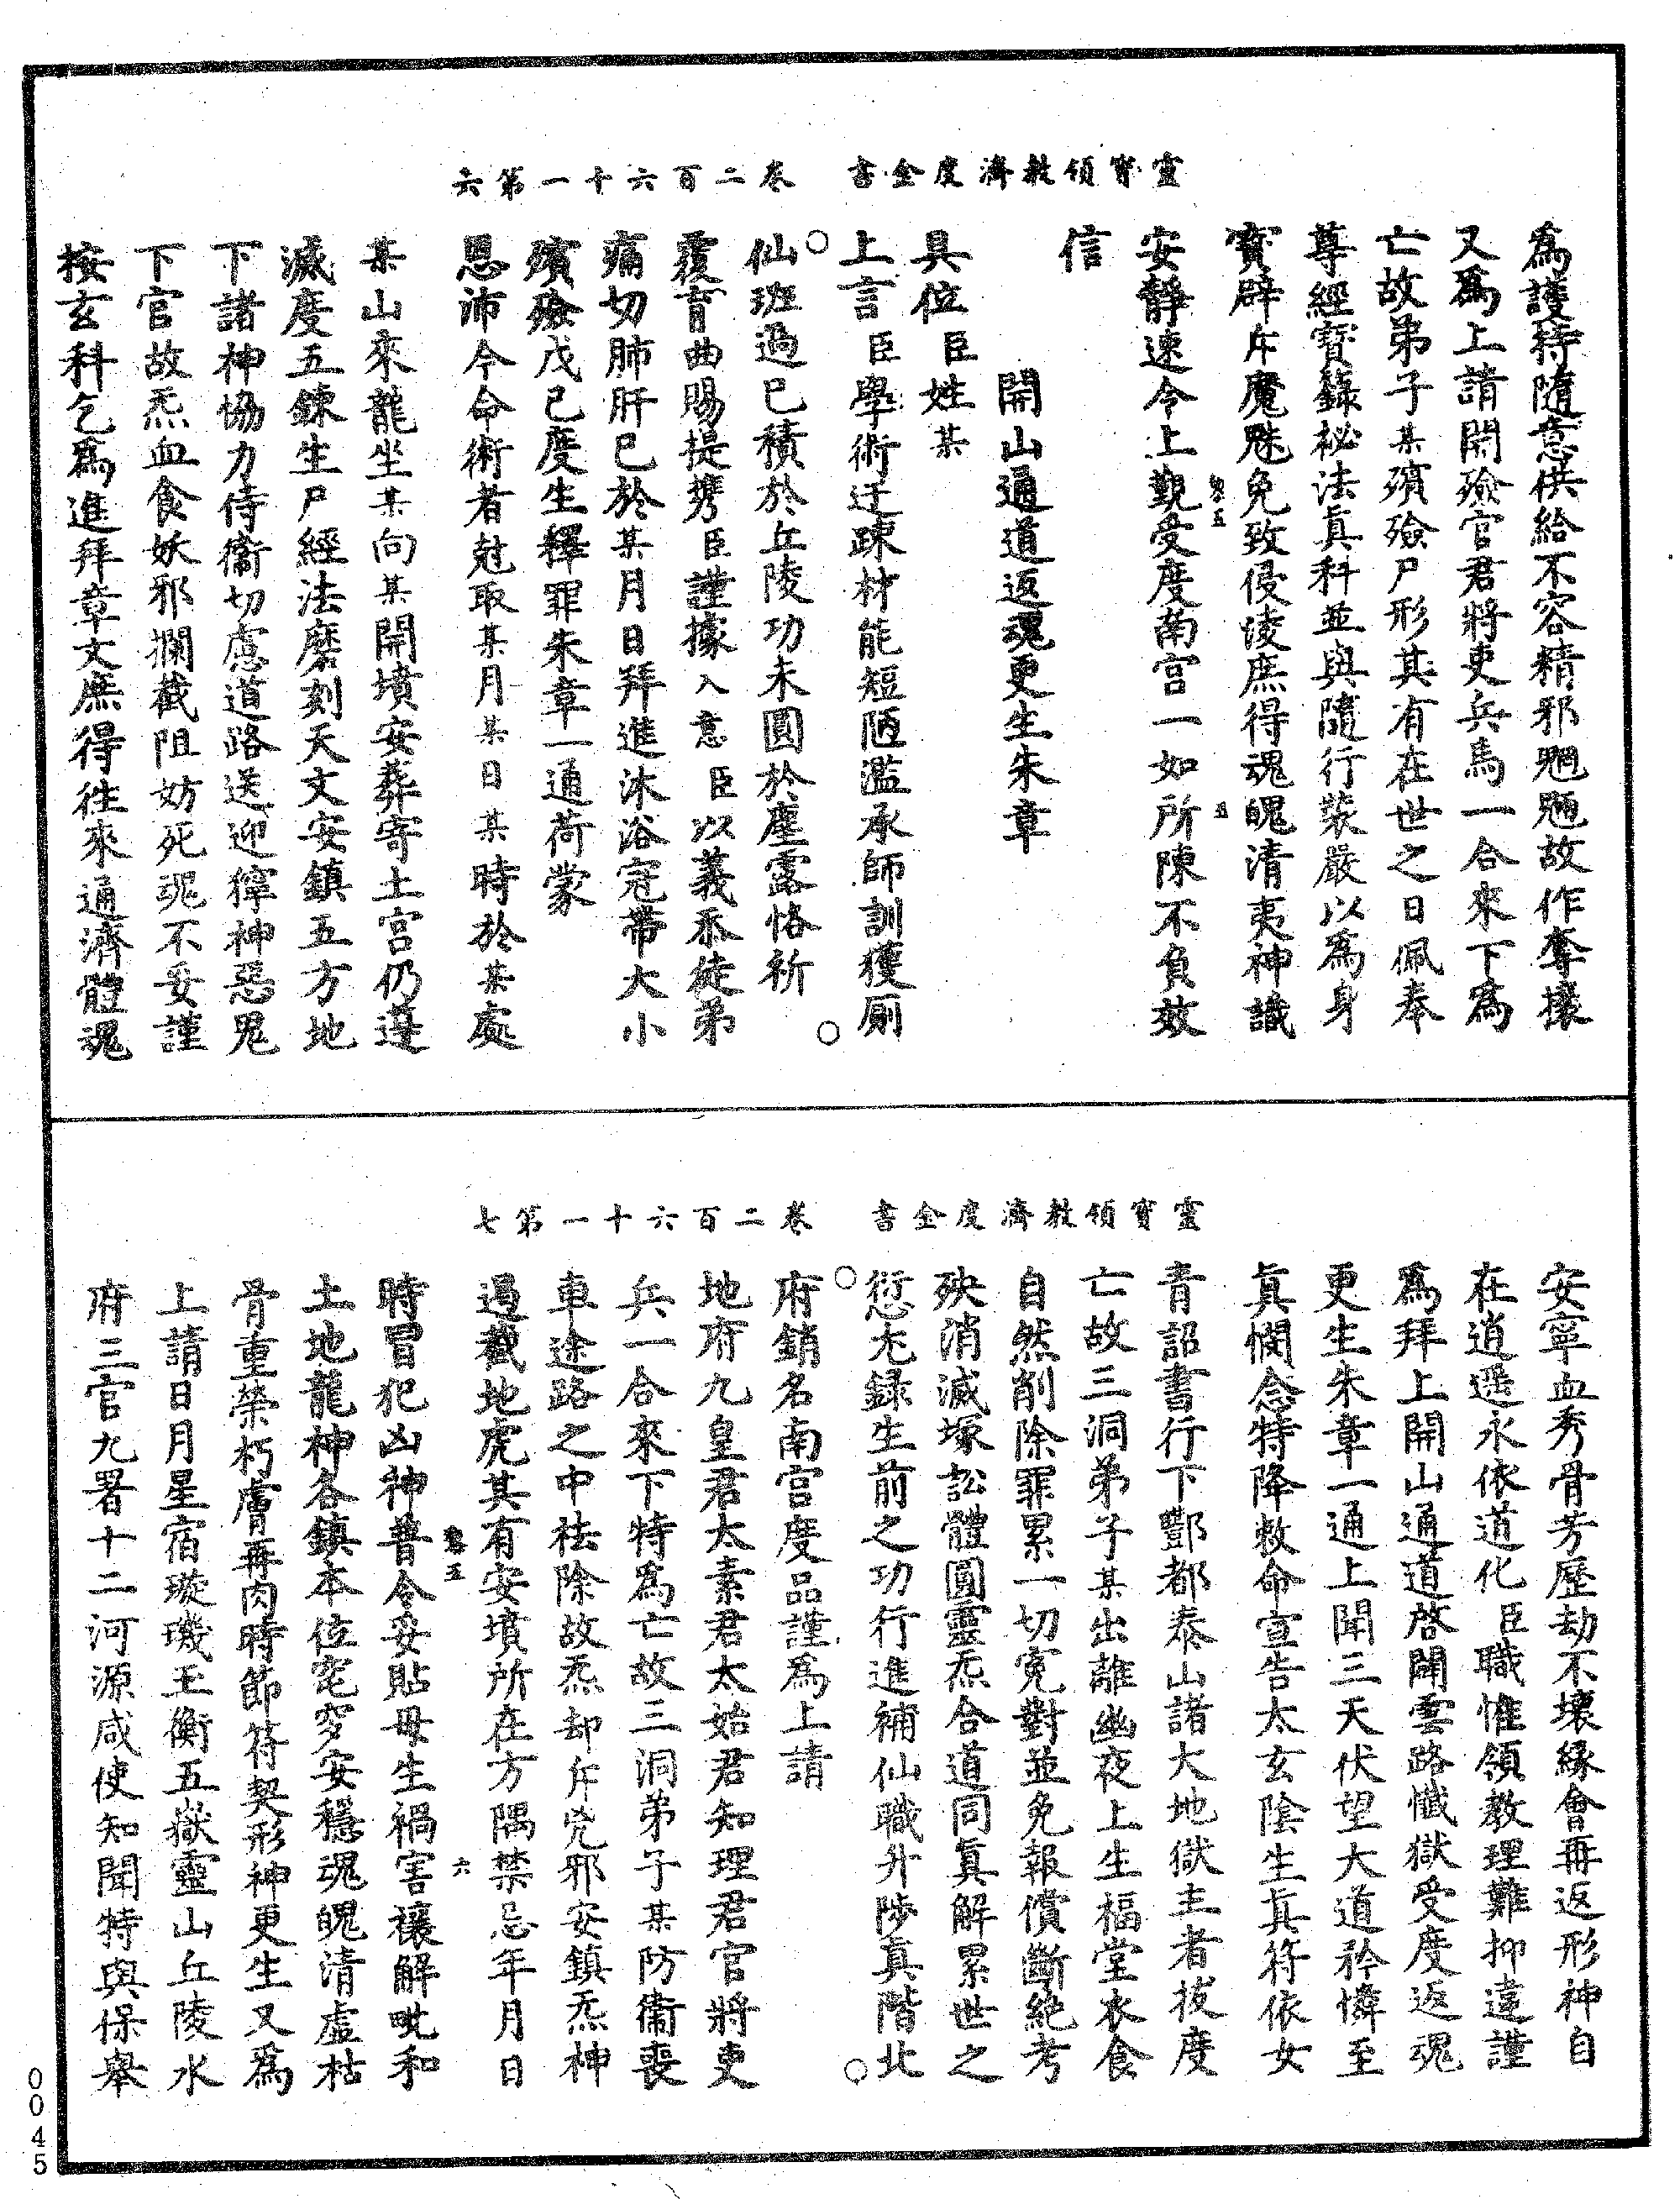 靈寶領教濟度金書　卷二百六十一第六
為護持隨意供給不容精邪魍魎故作奪攘
又爲上請開殮官君將吏兵馬一合來下爲
亡故弟子某殯殮尸形其有在世之日佩奉
尊經寶籙祕法真科並與隨行裝嚴以爲身
寶辟斥魔魅免致侵淩庶得魂魄清夷神識
安靜速令上觀受度南宮一如所陳不負效
信
開山通道返魂更生朱章
具位臣姓某
上言臣學術迂踈材能短陋濫承師訓獲厠
仙班過已積於丘陵功未圓於塵露恪祈
覆育曲賜提携臣謹據入意臣以義忝徒弟
痛切肺肝已於某月日拜進沐浴冠帶大小
殯殮戊己度生釋罪朱章一通荷蒙
恩沛今命術者尅取某月某日某時於某處
某山來龍坐某向某開墳安葬寄土宮仍遵
滅度五鍊生尸經法磨刻天文安鎮五方地
下諸神恊力侍衞切慮道路送迎獰神惡鬼
下官故炁血食妖邪攔截阻妨死魂不妥謹
按玄科乞爲進拜章文庶得徃來通濟體魂
靈寶領教濟度金書　卷二百六十一第七
安寧血秀骨芳歷劫不壞緣會再返形神自
在逍遥永依道化臣職惟領教理難抑違謹
爲拜上開山通道啓開雲路懺獄受度返魂
更生朱章一通上聞三天伏望大道矜憐至
真憫念特降敕命宣告太玄陰生真符依女
青詔書行下酆都泰山諸大地獄主者拔度
亡故三洞弟子某出離幽夜上生福堂衣食
自然削除罪累一切寃對並免報償斷絶考
殃消滅塚訟體圓靈炁合道同真解累世之
愆尤録生前之功行進補仙職升陟真階北
府銷名南宮度品謹爲上請
地府九皇君太素君太始君知理君官將吏
兵一合來下特爲亡故三洞弟子某防衞喪
車途路之中祛除故炁却斥兇邪安鎮炁神
遏截地虎其有安墳所在方隅禁忌年月日
時冒犯凶神普令妥貼毋生禍害禳解呲和
土地龍神各鎮本位窀穸安穩魂魄清虛枯
骨重榮朽膚再肉時節符契形神更生又爲
上請日月星宿璇璣玉衡五嶽靈山丘陵水
府三官九署十二河源咸使知聞特與保舉
0045